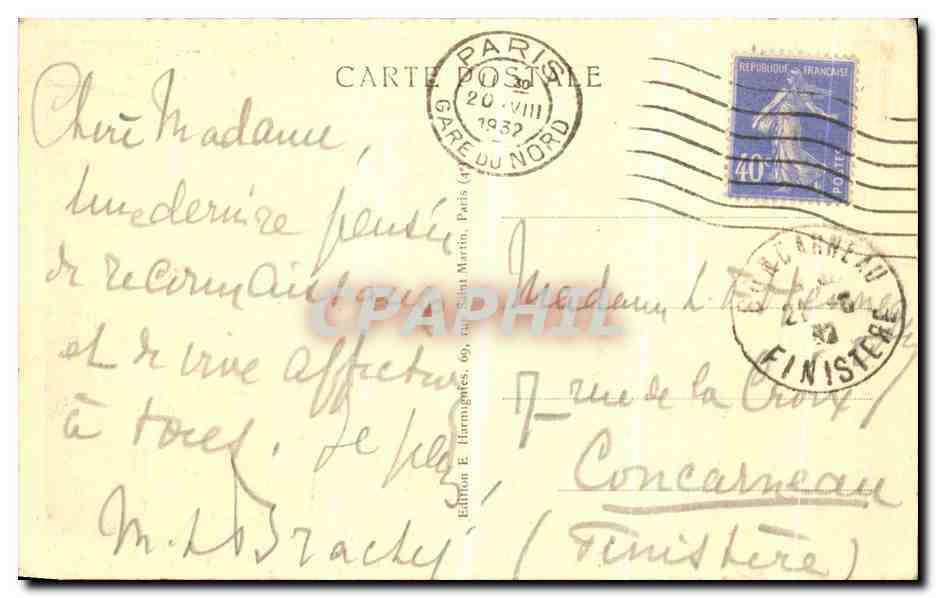 CARTE POSTALE
PARIS
GARE DU NORD
20 VIII
1932
REPUBLIQUE FRANÇAISE
POSTES
40c
Chère Madame,
une dernière pensée
de reconnaissance
et de vive affection
à tous. Je
M.
Edition E. Harmignies, 69, rue Saint Martin, Paris (4
CONCARNEAU
21 -8
32
FINISTERE
Madame L.
7 rue de la Croix
Concarneau
(Finistère)
CPAPHIL